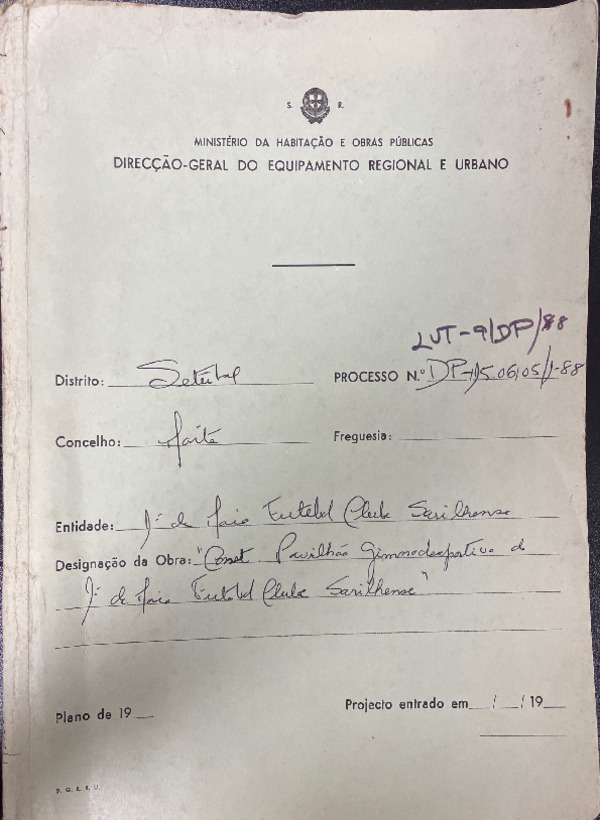 S. R.
MINISTÉRIO DA HABITAÇÃO E OBRAS PÚBLICAS
DIRECÇÃO-GERAL DO EQUIPAMENTO REGIONAL E URBANO
LVT-9/DP/88
Distrito: Setúbal PROCESSO N.º
Concelho: Moita Freguesia:
Entidade: 1º de Maio Futebol Clube Sarilhense
Designação da Obra: "Const Pavilhão Gimnodesportivo do
1º de Maio Futebol Clube Sarilhense"
Plano de 19 Projecto entrado em / / 19
D. G. E. R. U.